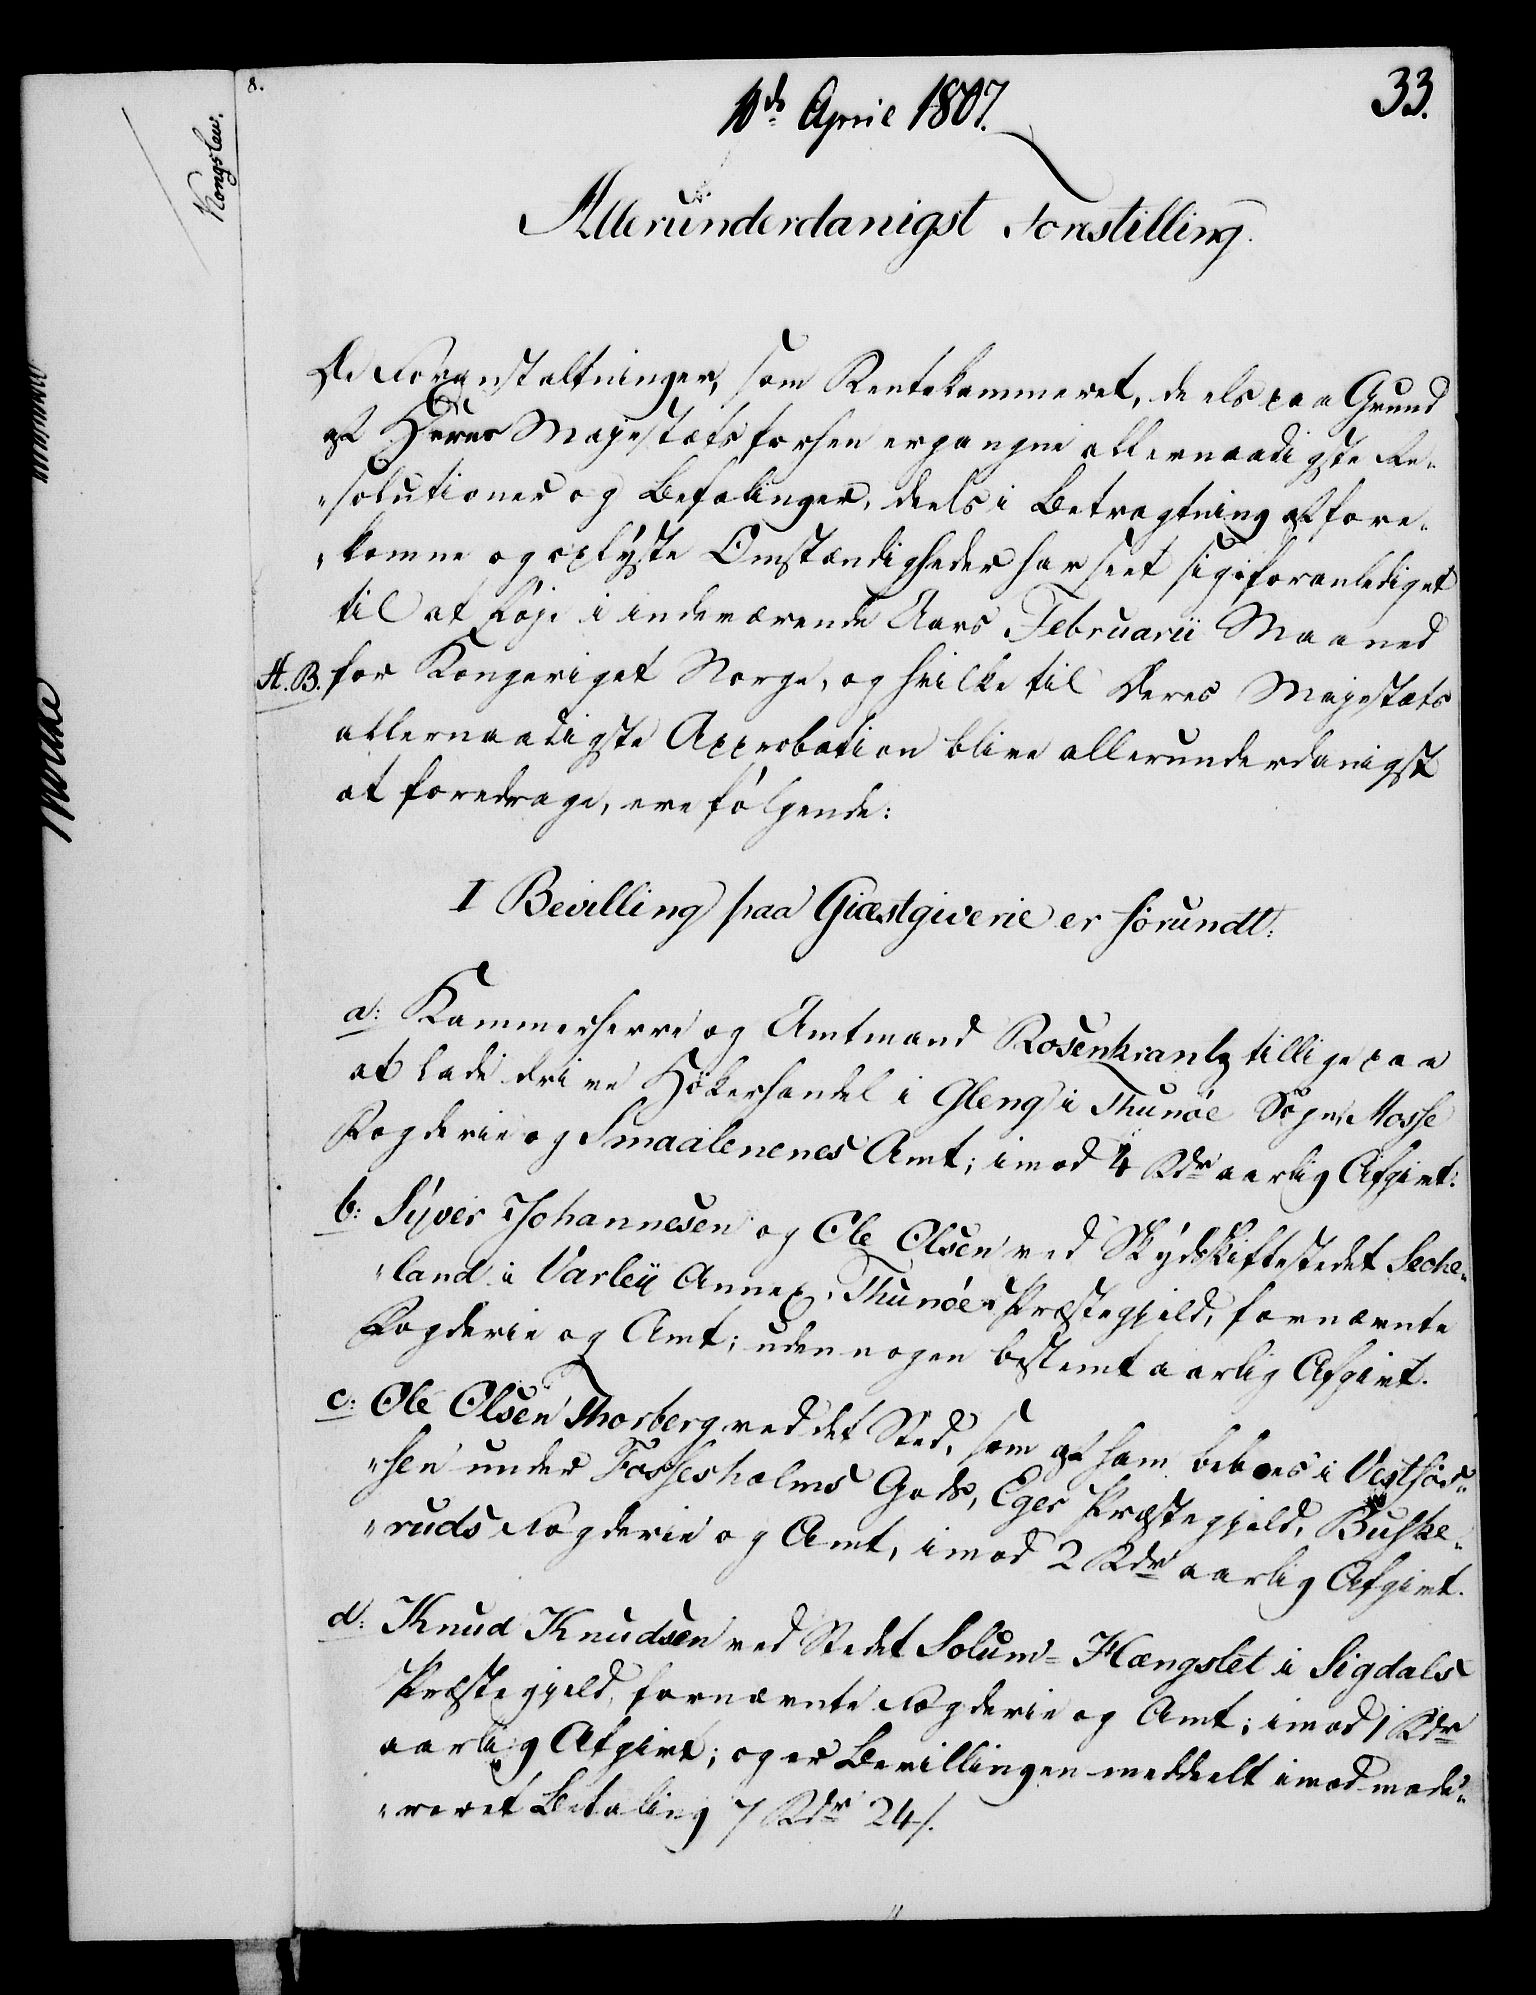 8.
Kongslew.
33.
1ds April 1807.
Allerunderdanigst Forestilling.
De Foranstaltninger, som Rentekammeret, deels paa Grund
af Deres Majestæts forhen ergangne allernaadigste Re„
„solutioner og Befalinger, deels i Betragtning af fore„
„komne og oplyste Omstændigheder har seet sig foranlediget
til at føje i indeværende Aars Februarii Maaned
A. B. for Kongeriget Norge, og hvilke til Deres Majestæts
allernaadigste Approbation blive allerunderdanigst
at foredrage, ere følgende:
I Bevilling paa Giæstgiverie er forundt:
a: Kammerherre og Amtmand Rosenkrantz tillige paa
at lade drive Høkerhandel i Gleng i Thunøe Sogn, Mosse
Fogderie og Smaalenenes Amt; imod 4 Rdr aarlig Afgivt.
b: Syver Johannesen og Ole Olsen ved Skydskiftestedet Seche„
„land i Varley Annex, Thunøe Præstegjeld, fornævnte
Fogderie og Amt; uden nogen bestemt aarlig Afgivt.
c: Ole Olsen Thorberg ved det Sted, som af ham beboes i Vestfos„
„sen under Fossesholms Gods, Eger Præstegjeld, Buske„
„ruds Fogderie og Amt, imod 2 Rdr aarlig Afgivt.
d: Knud Knudsen ved Stedet Solum-Hængslet i Sigdals
Præstegjeld, fornævnte Fogderie og Amt; imod 1 Rdr
aarlig Afgivt; og er Bevillingen meddeelt imod mode„
„reret Betaling 7 Rdr 24 s.